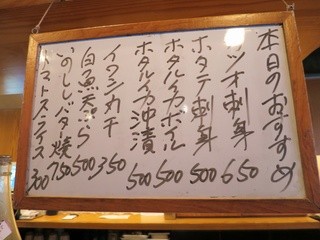 本日のおすすめ
カツオ刺身 650
ホタテ刺身 500
ホタルイカボイル 500
ホタルイカ沖漬 500
イワシ丸干 350
白魚天ぷら 500
いのししバター焼 750
トマトスライス 300